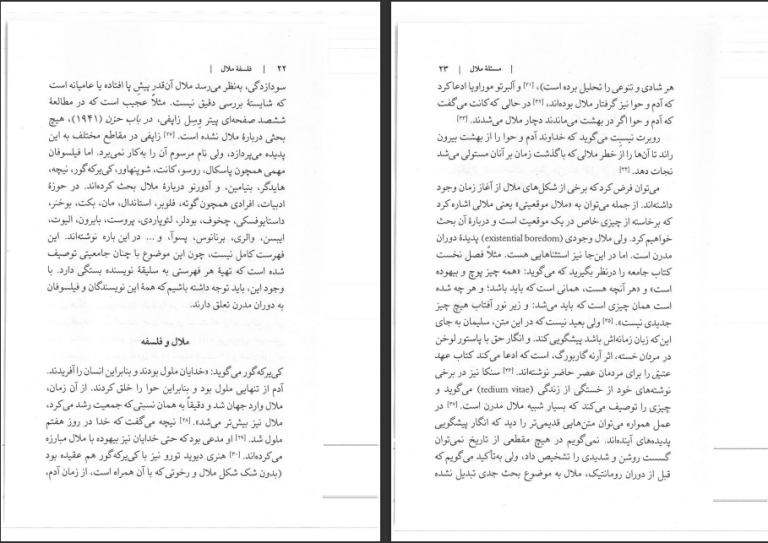 ۲۲ | فلسفهٔ ملال |
سودازدگی، به‌نظر می‌رسد ملال آن‌قدر پیشِ پا افتاده یا عامیانه است
که شایستهٔ بررسی دقیق نیست. مثلاً عجیب است که در مطالعهٔ
ششصد صفحه‌ای پیتر وسل زاپفی، در باب حزن (۱۹۴۱)، هیچ
بحثی دربارهٔ ملال نشده است. [۲۷] زاپفی در مقاطع مختلف به این
پدیده می‌پردازد، ولی نام مرسوم آن را به‌کار نمی‌برد. اما فیلسوفان
مهمی همچون پاسکال، روسو، کانت، شوپنهاور، کی‌یرکه‌گور، نیچه،
هایدگر، بنیامین، و آدورنو دربارهٔ ملال بحث کرده‌اند. در حوزهٔ
ادبیات، افرادی همچون گوته، فلوبر، استاندال، مان، بکت، بوخنر،
داستایوفسکی، چخوف، بودلر، لئوپاردی، پروست، بایرون، الیوت،
ایبسن، والری، برنانوس، پسوآ، و ... در این باره نوشته‌اند. این
فهرست کامل نیست، چون این موضوع با چنان جامعیتی توصیف
شده است که تهیهٔ هر فهرستی به سلیقهٔ نویسنده بستگی دارد. با
وجود این، باید توجه داشته باشیم که همهٔ این نویسندگان و فیلسوفان
به دوران مدرن تعلق دارند.
ملال و فلسفه
کی‌یرکه‌گور می‌گوید: «خدایان ملول بودند و بنابراین انسان را آفریدند.
آدم از تنهایی ملول بود و بنابراین حوا را خلق کردند. از آن زمان،
ملال وارد جهان شد و دقیقاً به همان نسبتی که جمعیت رشد می‌کرد،
ملال نیز بیش‌تر می‌شد». [۲۸] نیچه می‌گفت که خدا در روز هفتم
ملول شد. [۲۹] او مدعی بود که حتی خدایان نیز بیهوده با ملال مبارزه
می‌کرده‌اند. [۳۰] هنری دیوید تورو نیز با کی‌یرکه‌گور هم عقیده بود
(بدون شک شکل ملال و رخوتی که با آن همراه است، از زمان آدم،
| مسئلهٔ ملال | ۲۳
هر شادی و تنوعی را تحلیل برده است)، [۳۱] و آلبرتو موراویا ادعا کرد
که آدم و حوا نیز گرفتار ملال بوده‌اند، [۳۲] در حالی که کانت می‌گفت
که آدم و حوا اگر در بهشت می‌ماندند دچار ملال می‌شدند. [۳۳]
روبرت نیسبت می‌گوید که خداوند آدم و حوا را از بهشت بیرون
راند تا آن‌ها را از خطر ملالی که با گذشت زمان بر آنان مستولی می‌شد
نجات دهد. [۳۴]
می‌توان فرض کرد که برخی از شکل‌های ملال از آغاز زمان وجود
داشته‌اند. از جمله می‌توان به «ملال موقعیتی» یعنی ملالی اشاره کرد
که برخاسته از چیزی خاص در یک موقعیت است و دربارهٔ آن بحث
خواهیم کرد. ولی ملال وجودی (existential boredom) پدیدهٔ دوران
مدرن است. اما در این‌جا نیز استثناهایی هست. مثلاً فصل نخست
کتاب جامعه را درنظر بگیرید که می‌گوید: «همه چیز پوچ و بیهوده
است» و «هر آنچه هست، همانی است که باید باشد؛ و هر چه شده
است همان چیزی است که باید می‌شد: و زیر نور آفتاب هیچ چیز
جدیدی نیست». [۳۵] ولی بعید نیست که در این متن، سلیمان به جای
این‌که زبان زمانه‌اش باشد پیشگویی کند. و انگار حق با پاستور لوخن
در مردان خسته، اثر آرنه گاربورگ، است که ادعا می‌کند کتاب عهد
عتیق را برای مردمان عصر حاضر نوشته‌اند. [۳۶] سنکا نیز در برخی
نوشته‌های خود از خستگی از زندگی (tedium vitae) می‌گوید و
چیزی را توصیف می‌کند که بسیار شبیه ملال مدرن است. [۳۷] در
عمل همواره می‌توان متن‌هایی قدیمی‌تر را دید که انگار پیشگویی
پدیده‌های آینده‌اند. نمی‌گویم در هیچ مقطعی از تاریخ نمی‌توان
گسست روشن و شدیدی را تشخیص داد، ولی به‌تأکید می‌گویم که
قبل از دوران رومانتیک، ملال به موضوع بحث جدی تبدیل نشده